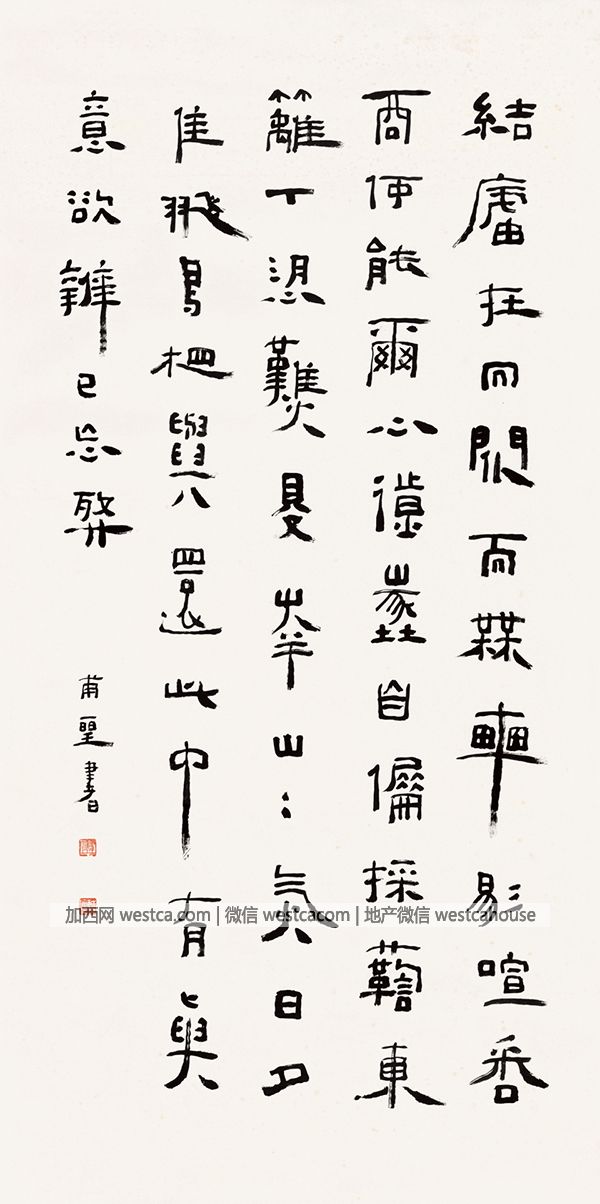 結廬在人間而無車馬喧問
君何能爾心遠地自偏採菊東
籬下悠然見南山〻氣日夕
佳飛鳥相與還此中有真
意欲辨已忘言
甫聖書
加西网 westca.com | 微信 westcacom | 地产微信 westcahouse